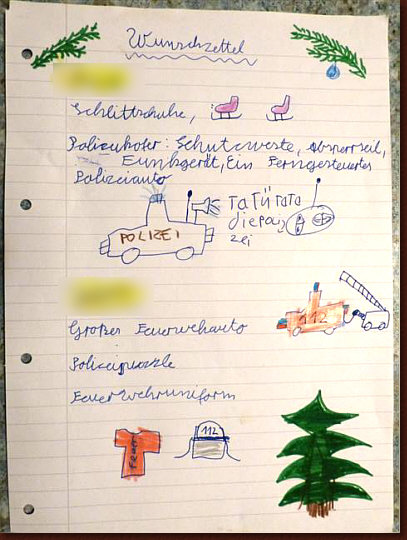 Wunschzettel
Schlittschuhe,
Polizeikofer: Schutzweste, Absperrseil,
Funkgerät, Ein Ferngesteuertes
Polizeiauto
POLIZEI
TATÜ TATA
dIEPOLI
zei
112
Großer Feuerwehrauto
Polizeipuzzle
Feuerwehruniform
FEUER
112